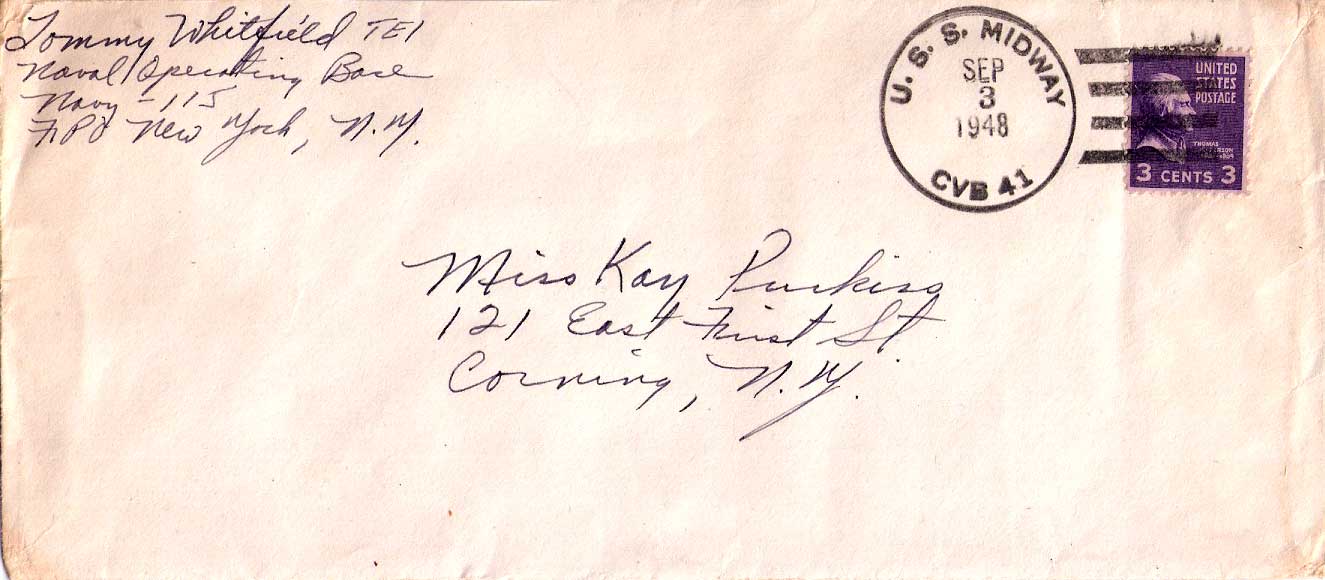 Tommy Whitfield TE1
Naval Operating Base
Navy - 115
FPO New York, N.Y.
U. S. S. MIDWAY
SEP
3
1948
CVB 41
UNITED
STATES
POSTAGE
THOMAS
3 CENTS 3
Miss Kay Purkiss
121 East First St
Corning, N.Y.